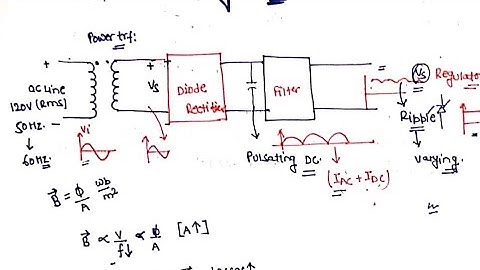 Power trf:
+
+
AC Line
120V (Rms)
50Hz.
60Hz.
Vi
Vs
Diode
Rectifier
Filter
Vs
Regulator
Ripple
varying.
Pulsating DC.
(IAC + IDC)
B = ϕ/A wb/m2
B ∝ V/f↓ ∝ ϕ/A [A↑]